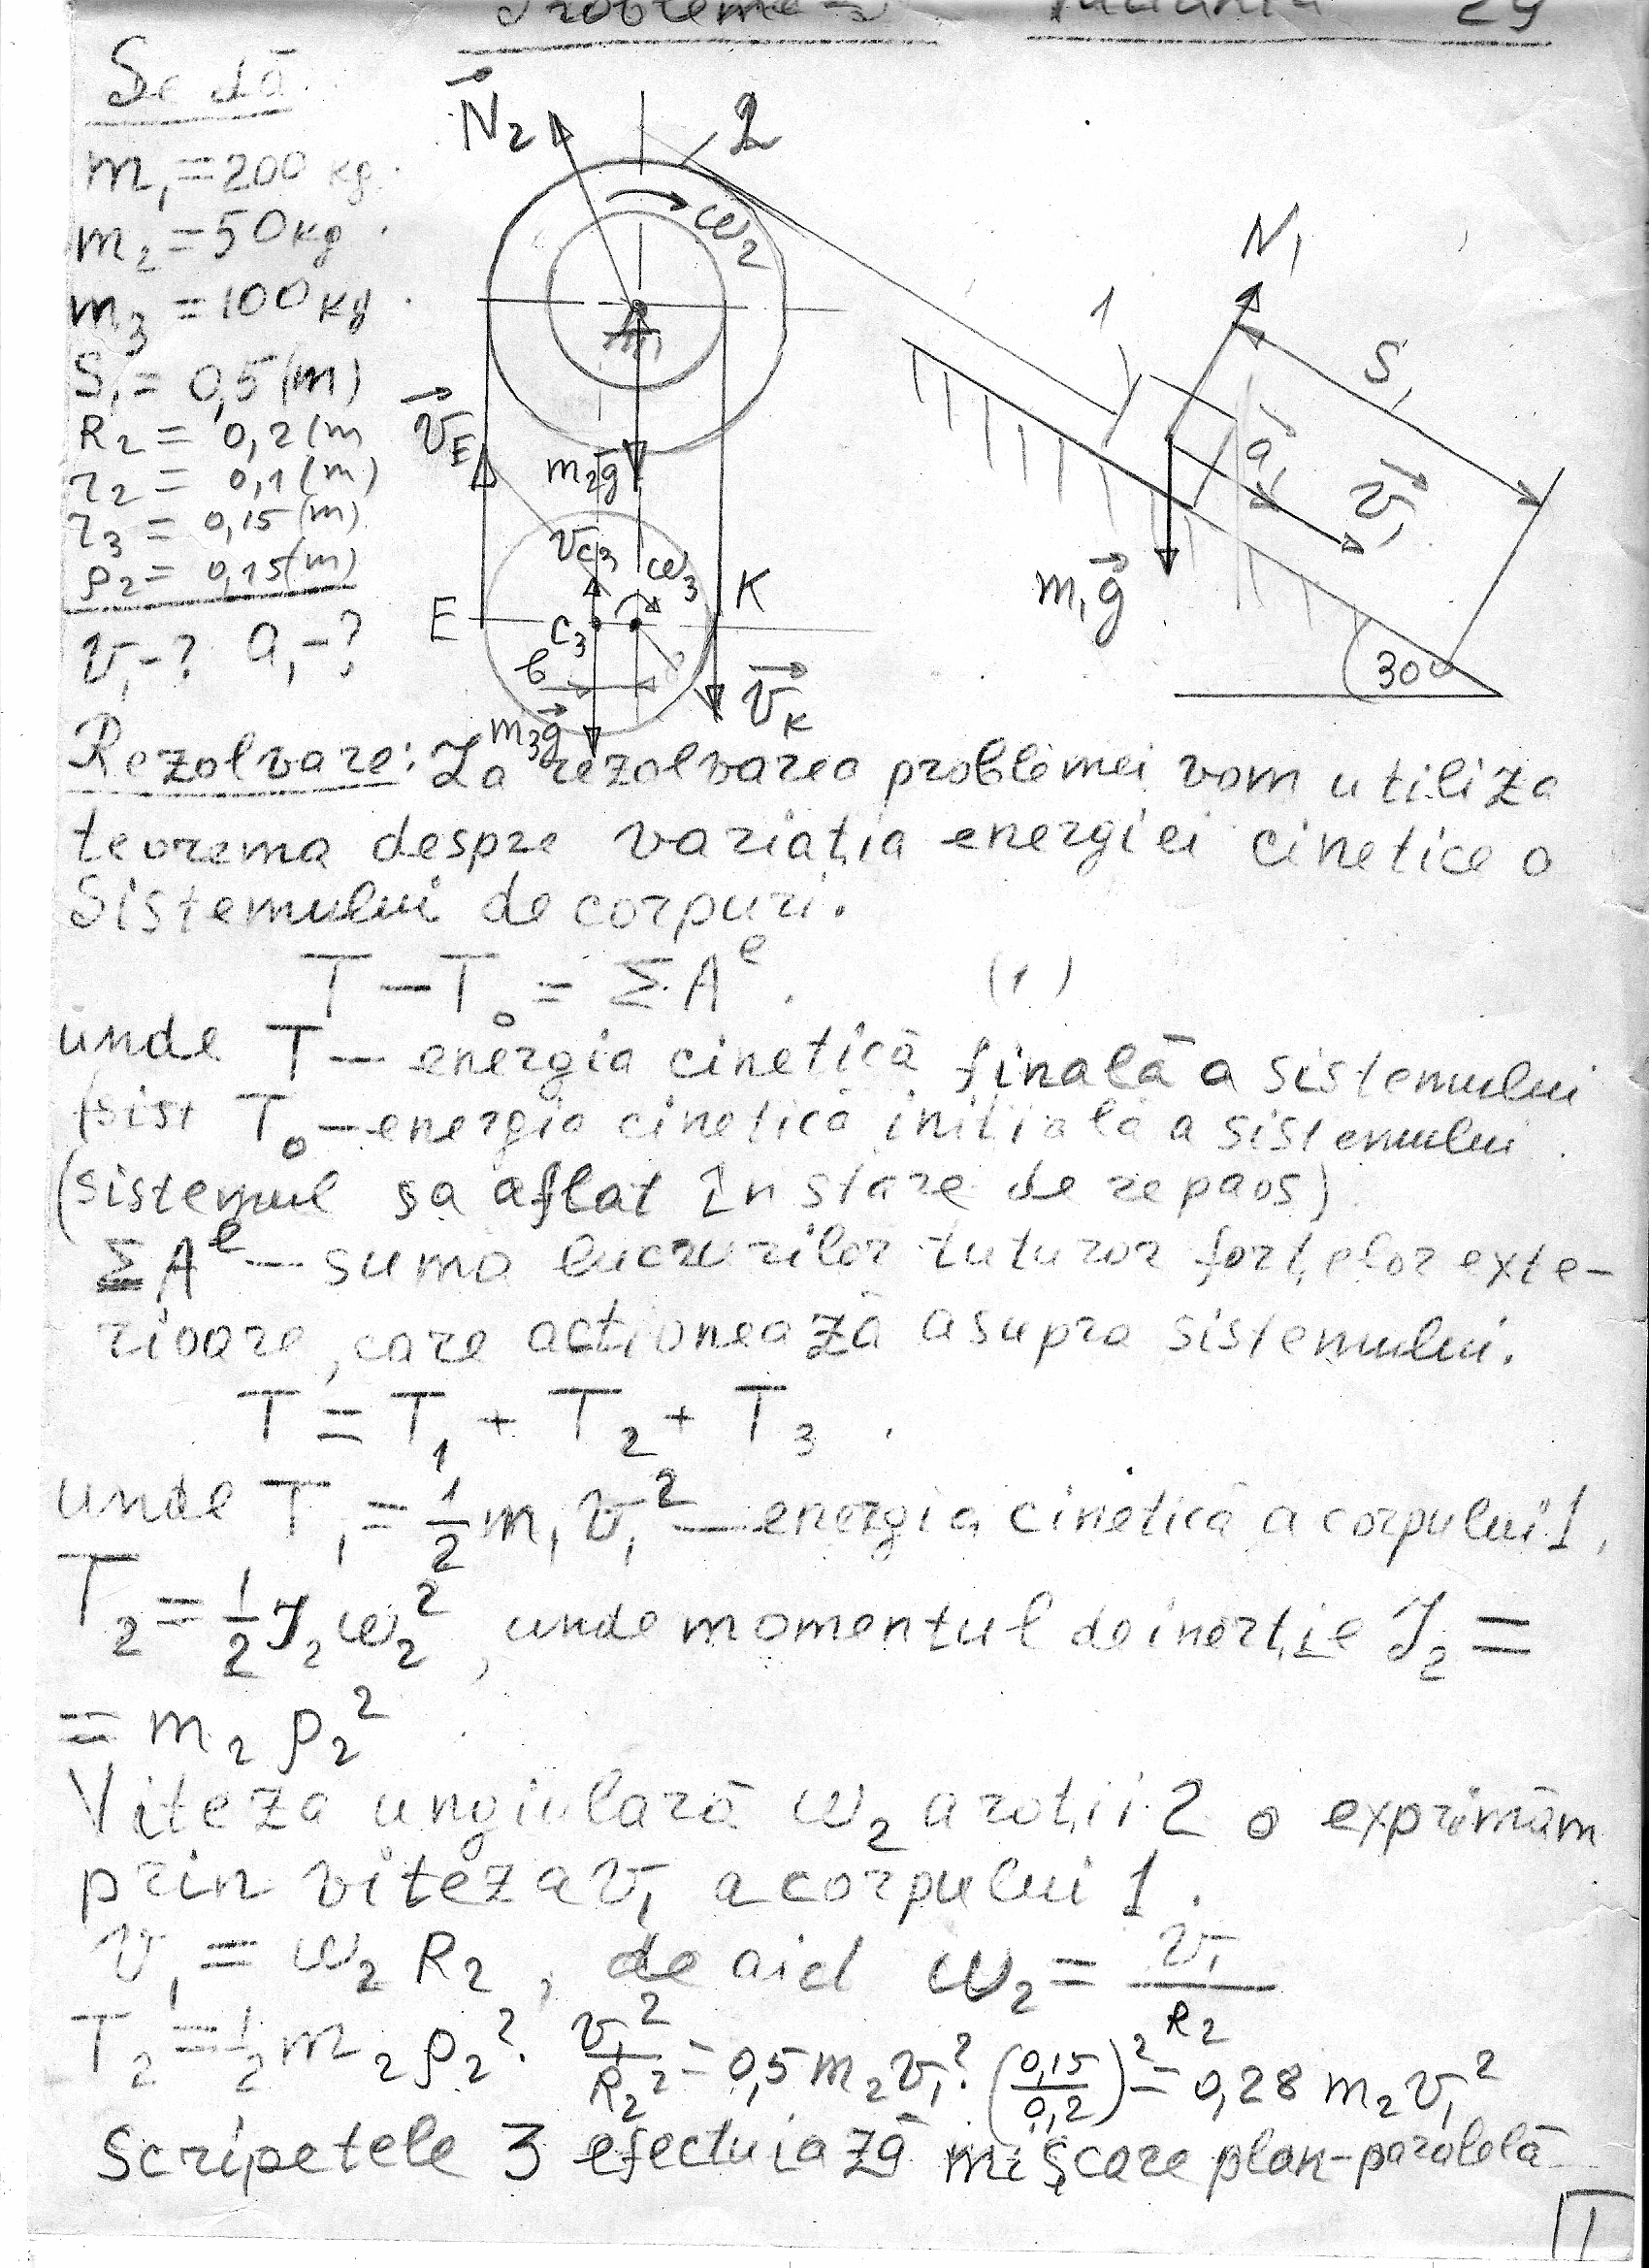 Se dă
m₁ = 200 kg.
m₂ = 50 kg.
m₃ = 100 kg.
S₁ = 0,5 (m)
R₂ = 0,2 (m
r₂ = 0,1 (m)
r₃ = 0,15 (m)
ρ₂ = 0,15 (m)
v₁ - ? a₁ - ?
N₂
2
ω₂
v_E
m₂g
v_C₃
ω₃
E
C₃
K
b
m₃g
v_K
1
N₁
S₁
a₁
v₁
m₁g
30°
Rezolvare: La rezolvarea problemei vom utiliza
teorema despre variația energiei cinetice a
sistemului de corpuri.
T - T₀ = ΣAᵉ. (1)
unde T — energia cinetică finală a sistemului
(sist T₀ — energia cinetică inițială a sistemului.
(sistemul sa aflat în stare de repaos)
ΣAᵉ — suma lucrurilor tuturor forțelor exte-
rioare, care acționează asupra sistemului.
T = T₁ + T₂ + T₃.
unde T₁ = 1/2 m₁ v₁² — energia cinetică a corpului 1,
T₂ = 1/2 J₂ ω₂², unde momentul de inerție J₂ =
= m₂ ρ₂²
Viteza unghiulară ω₂ a roții 2 o exprimăm
prin viteza v₁ a corpului 1.
v₁ = ω₂ R₂, de aici ω₂ = v₁/R₂
T₂ = 1/2 m₂ ρ₂² · v₁²/R₂² = 0,5 m₂ v₁² · (0,15/0,2)² = 0,28 m₂ v₁²
Scripetele 3 efectuiază mișcare plan-paralelă
1